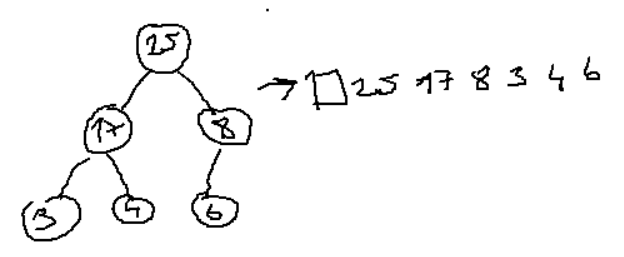 25
17 8
3 4 6
→ □ 25 17 8 3 4 6